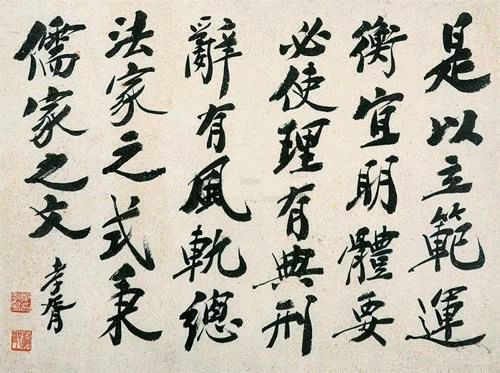 是以立範運
衡宜明體要
必使理有典刑
辭有風軌總
法家之式秉
儒家之文
孝胥